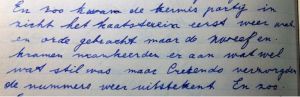 En zoo kwam de kermis party in
zicht het kaatsterrein eerst weer wat
en orde gebracht maar de zweef en
kramen mankeerden er aan wat wel
wat stil was maar Crekendo verzorgde
de nummers weer uitstekent. En zoo